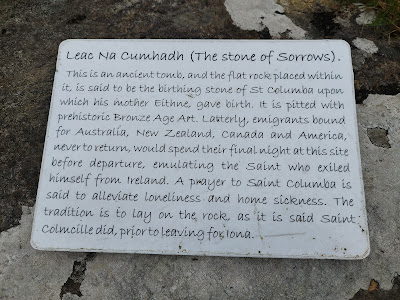 Leac Na Cumhadh (The stone of Sorrows).
This is an ancient tomb, and the flat rock placed within
it, is said to be the birthing stone of St Columba upon
which his mother Eithne, gave birth. It is pitted with
prehistoric Bronze Age Art. Latterly, emigrants bound
for Australia, New Zealand, Canada and America,
never to return, would spend their final night at this site
before departure, emulating the Saint who exiled
himself from Ireland. A prayer to Saint Columba is
said to alleviate loneliness and home sickness. The
tradition is to lay on the rock, as it is said Saint
Colmcille did, prior to leaving for Iona.